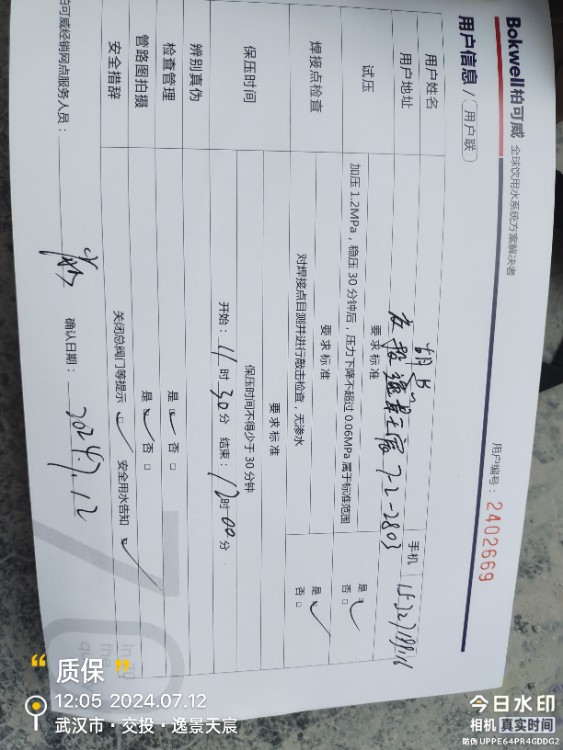 Bokwell柏可威 全球饮用水系统方案解决者
用户编号：2402669
用户信息/用户联
用户姓名 胡 手机
用户地址 交投逸景天宸 7-2-2803
试压
要求标准
加压 1.2MPa，稳压 30 分钟后，压力下降不超过 0.06MPa 属于标准范围
是 ✓
否 □
焊接点检查
要求标准
对焊接点目测并进行敲击检查，无渗水
是 ✓
否 □
保压时间
要求标准
保压时间不得少于 30 分钟
开始：11 时 30 分 结束：12 时 00 分
辨别真伪
检查管理 是 ✓ 否 □
管路图拍摄 是 ✓ 否 □
安全措辞 关闭总阀门等提示 ✓ 安全用水告知 ✓
柏可威经销网点服务人员：
确认日期：2024.7.12
“ 质保 ”
12:05 2024.07.12
武汉市·交投·逸景天宸
今日水印
相机 真实时间
防伪 UPPE64PR4GDDG2